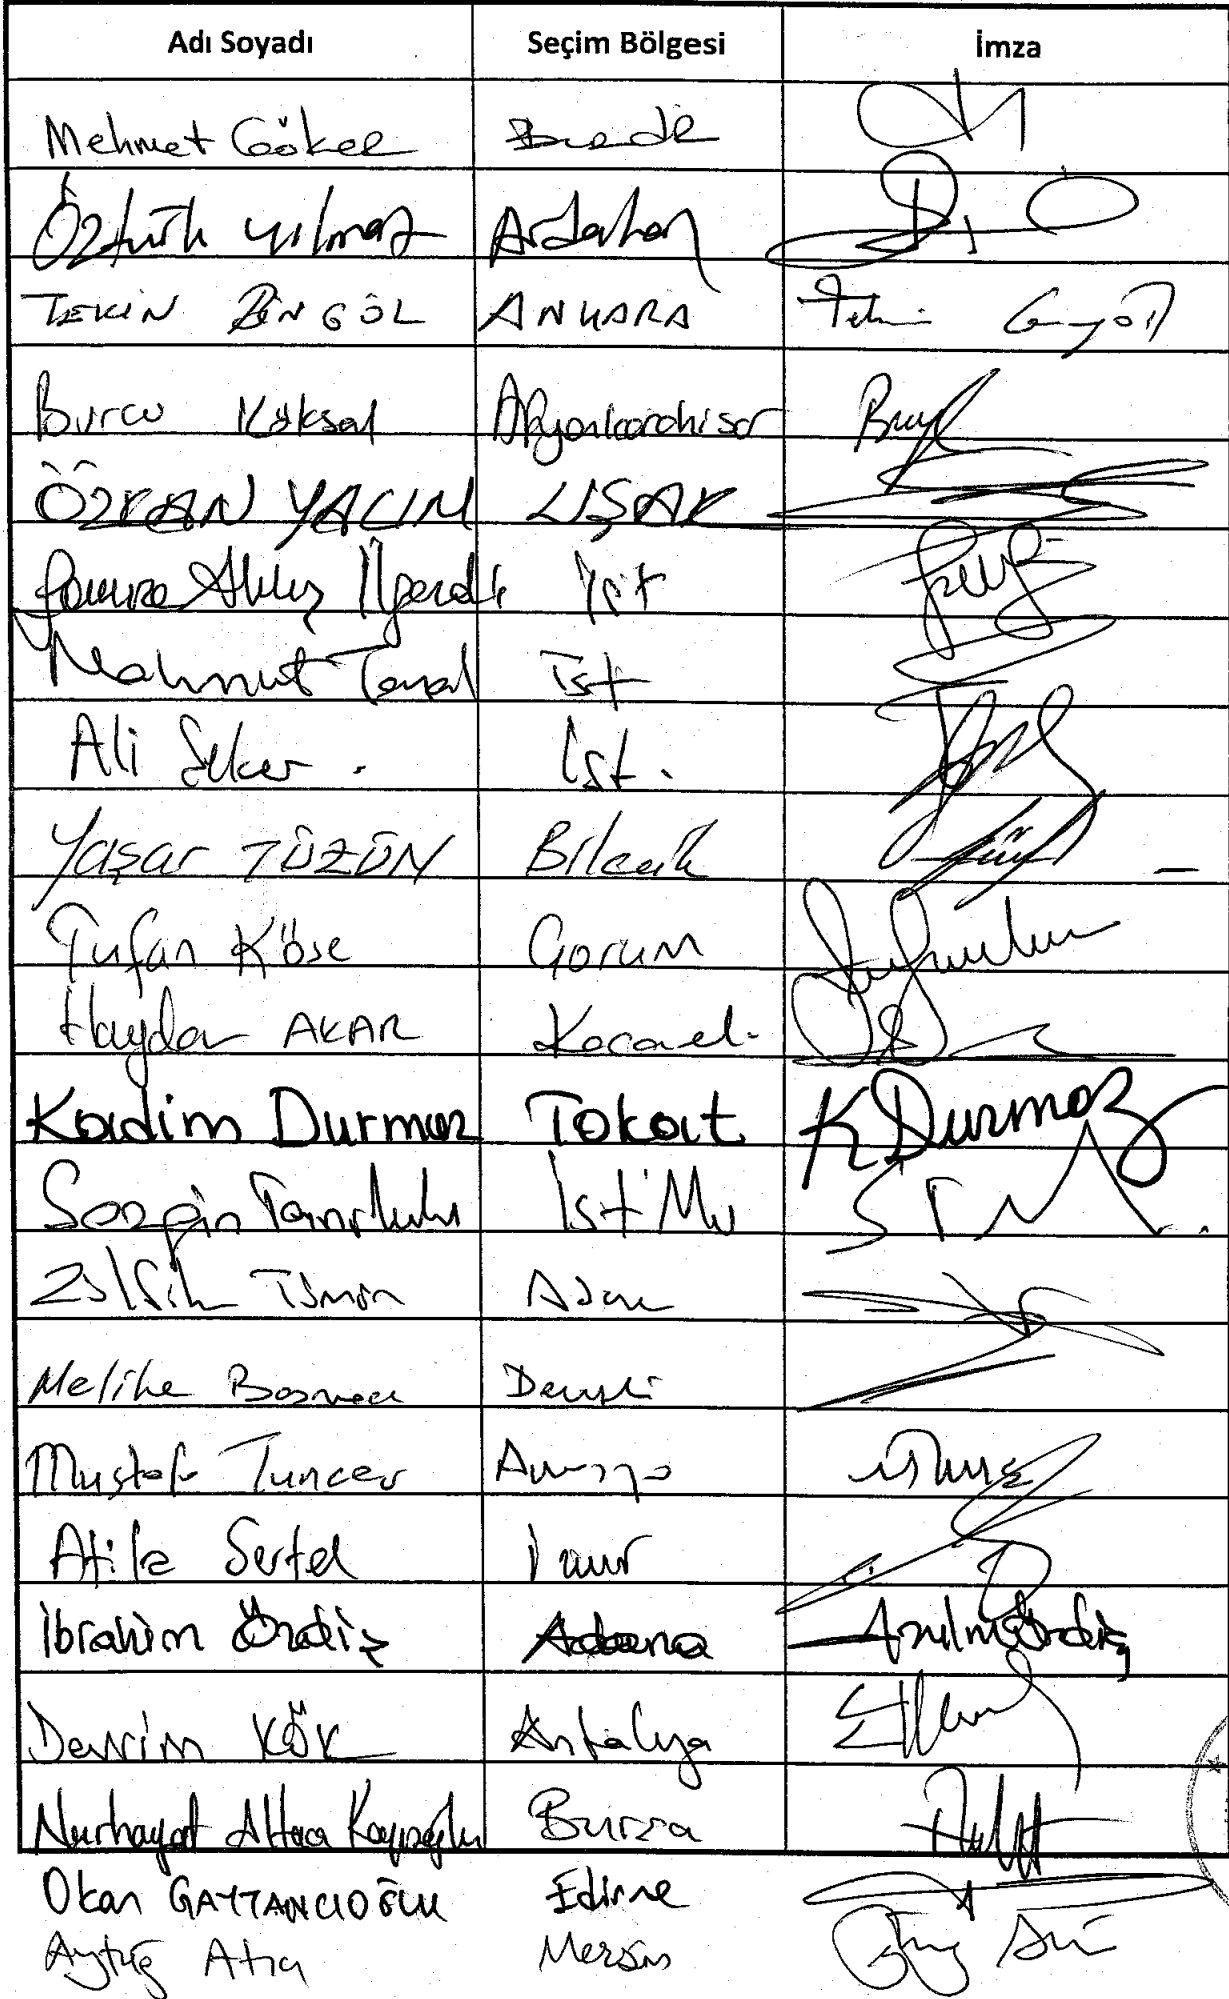 Adı Soyadı Seçim Bölgesi İmza
Mehmet Göker
Öztürk Yılmaz Ardahan
TEKİN BİNGÖL ANKARA
Burcu Köksal Afyonkarahisar
ÖZKAN YALIM UŞAK
Gamze Akkuş İlgezdi İst
Mahmut Tanal İst
Ali Şeker. İst.
Yaşar TÜZÜN Bilecik
Tufan Köse Çorum
Haydar AKAR Kocaeli
Kadim Durmaz Tokat K Durmaz
Sezgin Tanrıkulu İst Mv STM
Zülfik Tümör Adana
Melike Basmacı Denizli
Mustafa Tuncer Amasya
Atila Sertel İzmir
İbrahim Özdiş Adana
Devrim KÖK Antalya
Nurhayat Altaca Kayışoğlu Bursa
Okan GAYTANCIOĞLU Edirne
Aytuğ Atıcı Mersin